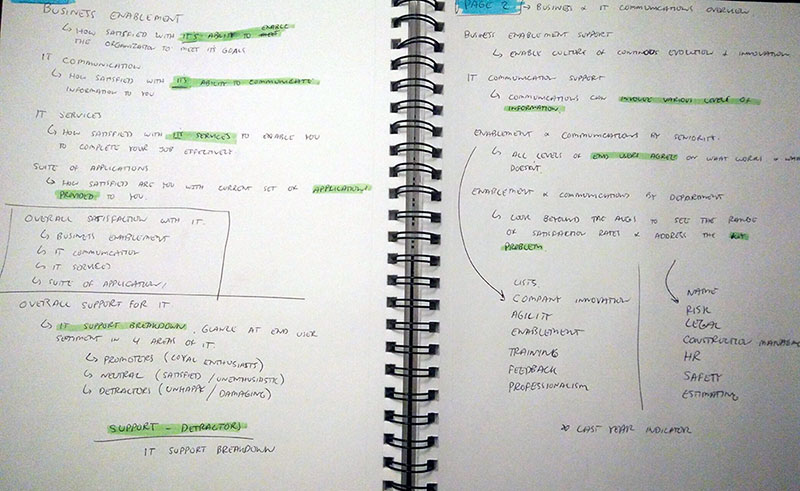 BUSINESS ENABLEMENT
↳ HOW SATISFIED WITH IT'S ABILITY TO MEET ENABLE
THE ORGANIZATION TO MEET ITS GOALS
IT COMMUNICATION
↳ HOW SATISFIED WITH IT'S ABILITY TO COMMUNICATE
INFORMATION TO YOU
IT SERVICES
↳ HOW SATISFIED WITH IT SERVICES TO ENABLE YOU
TO COMPLETE YOUR JOB EFFECTIVELY
SUITE OF APPLICATIONS
↳ HOW SATISFIED ARE YOU WITH CURRENT SET OF APPLICATIONS
PROVIDED TO YOU.
OVERALL SATISFACTION WITH IT.
↳ BUSINESS ENABLEMENT
↳ IT COMMUNICATION
↳ IT SERVICES
↳ SUITE OF APPLICATIONS
OVERALL SUPPORT FOR IT
↳ IT SUPPORT BREAKDOWN. GLANCE AT END USER
SETIMENT IN 4 AREAS OF IT.
↳ PROMOTERS (LOYAL ENTHUSIASTS)
↳ NEUTRAL (SATISFIED / UNENTHUSIASTIC)
↳ DETRACTORS (UNHAPPY / DAMAGING)
SUPPORT - DETRACTORS
IT SUPPORT BREAKDOWN
PAGE 2 → BUSINESS & IT COMMUNICATIONS OVERVIEW
BUSINESS ENABLEMENT SUPPORT
↳ ENABLE CULTURE OF CONTINOUS EVOLUTION & INNOVATION
IT COMMUNICATION SUPPORT
↳ COMMUNICATIONS CAN INVOLVE VARIOUS LEVELS OF
INFORMATION
ENABLEMENT & COMMUNICATIONS BY SENIORITY.
↳ ALL LEVELS OF END USERS AGREE ON WHAT WORKS & WHAT
DOESNT
ENABLEMENT & COMMUNICATIONS BY DEPARTMENT
↳ LOOK BEYOND THE AVGS TO SEE THE RANGE
OF SATISFACTION RATES & ADDRESS THE KEY
PROBLEM
LISTS
COMPANY INNOVATION
AGILITY
ENABLEMENT
TRAINING
FEEDBACK
PROFESSIONALISM
NAME
RISK
LEGAL
CONSTRUCTION MANAGEM
HR
SAFETY
ESTIMATING
LAST YEAR INDICATOR